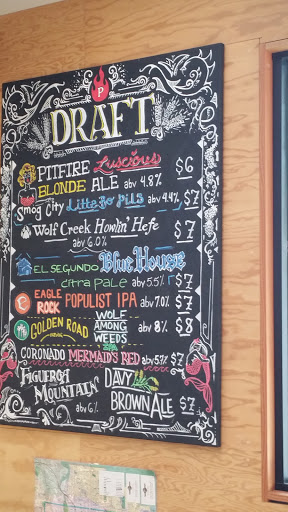 P
DRAFT
PITFIRE Luscious
BLONDE ALE abv 4.8% $6
Smog City Little Bo Pils abv 4.4% $7
Wolf Creek Howlin' Hefe $7
abv 6.0%
EL SEGUNDO Blue House
citra pale abv 5.5% $7
EAGLE ROCK POPULIST IPA abv 7.0% $7
GOLDEN ROAD WOLF AMONG WEEDS IPA abv 8% $8
CORONADO MERMAID'S RED abv 5.7% $7
FIGUEROA MOUNTAIN DAVY BROWN ALE $7
abv 6%